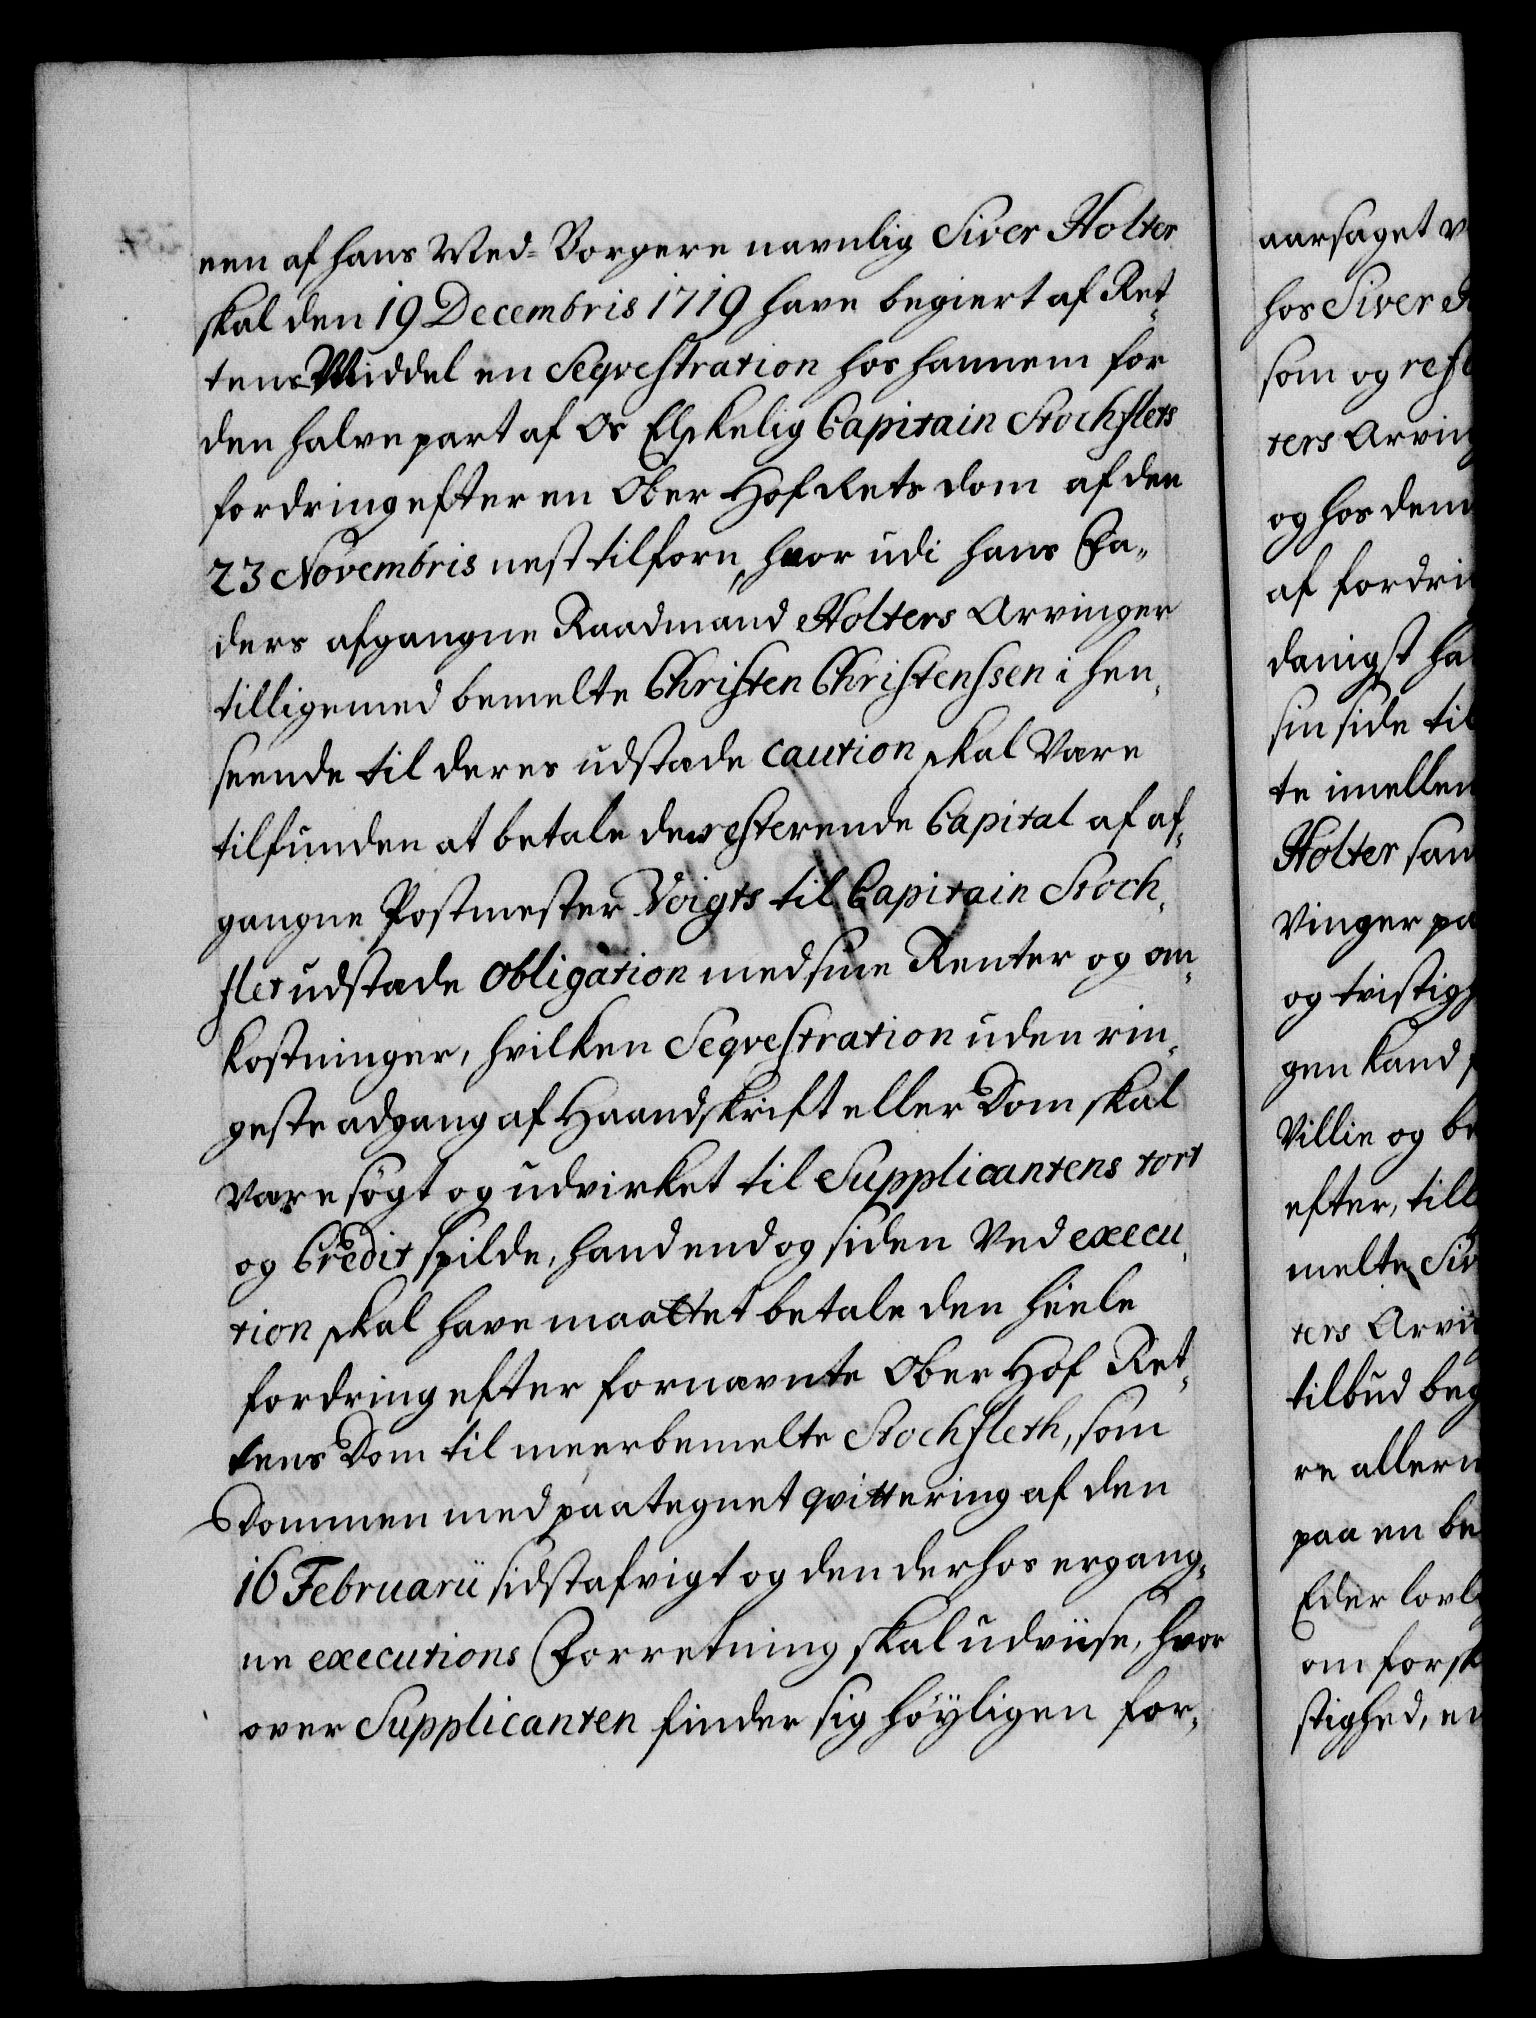 een af hans Med-Borgere navnlig Siver Holter
skal den 19 Decembris 1719 have begiert af Ret-
tens Middel en Seqvestration hos hannem for
den halve part af Os Elskelig Capitain Stochflets
fordring efter en Ober Hof Rets dom af den
23 Novembris nest tilforn, hvor udi hans Fa-
ders afgangne Raadmand Holters Arvinger
tilligemed bemelte Christen Christenssen i hen-
seende til deres udstæde caution skal være
tilfunden at betale den resterende Capital af af-
gangne Postmester Voigts til Capitain Stoch-
flet udstæde obligation med sine Renter og om-
kostninger, hvilken Seqvestration uden rin-
geste adgang af Haandskrift eller Dom skal
være søgt og udvirket til Supplicantens tort
og Credit spilde, hand end og siden Ved execu-
tion skal have maattet betale den heele
fordring efter fornævnte Ober Hof Ret-
tens Dom til meerbemelte Stochfleth, som
Dommen med paategnet qvittering af den
16 Februarii sidst afvigt og den derhos ergang-
ne executions Forretning skal udviise, hvor
over Supplicanten finder sig høyligen for-
aarsaget
hos Siver
som og
ters Arving
og hos dem
af fordri
danigst ha
sin side til
te imellem
Holter sam
Vinger pa
og tvistigh
gen kand
Villie og be
efter, till
melte Siv
ters Arvi
tilbud beg
re allern
paa en be
Eder lovl
om forsk
stighed, en